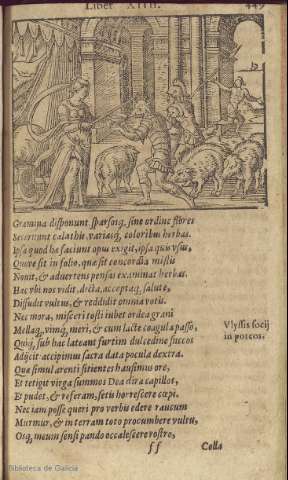 Liber XIIII. 449
Gramina disponunt, sparsosq́; sine ordine flores
Secernunt calathis, variasq́; coloribus herbas.
Ipsa quod hæ faciunt opus exigit, ipsa quis vsus,
Quove sit in folio, quæ sit concordia mistis
Nouit, & aduertens pensas examinat herbas.
Hæc vbi nos vidit, dicta, acceptaq́; salute,
Diffudit vultus, & reddidit omnia votis.
Nec mora, misceri tosti iubet ordea grani
Mellaq́;, vimq́; meri, & cum lacte coagula passo,
Quiq́; sub hac lateant furtim dulcedine succos
Adijcit accipimus sacra data pocula dextra.
Quæ simul arenti sitientes hausimus ore,
Et tetigit virga summos Dea dira capillos,
Et pudet, & referam, setis horrescere cœpi,
Nec iam posse queri pro verbis edere raucum
Murmur, & in terram toto procumbere vultu,
Osq́; meum sensi pando occalescere rostro,
Vlyssis socij
in porcos.
ff
Colla
Biblioteca de Galicia